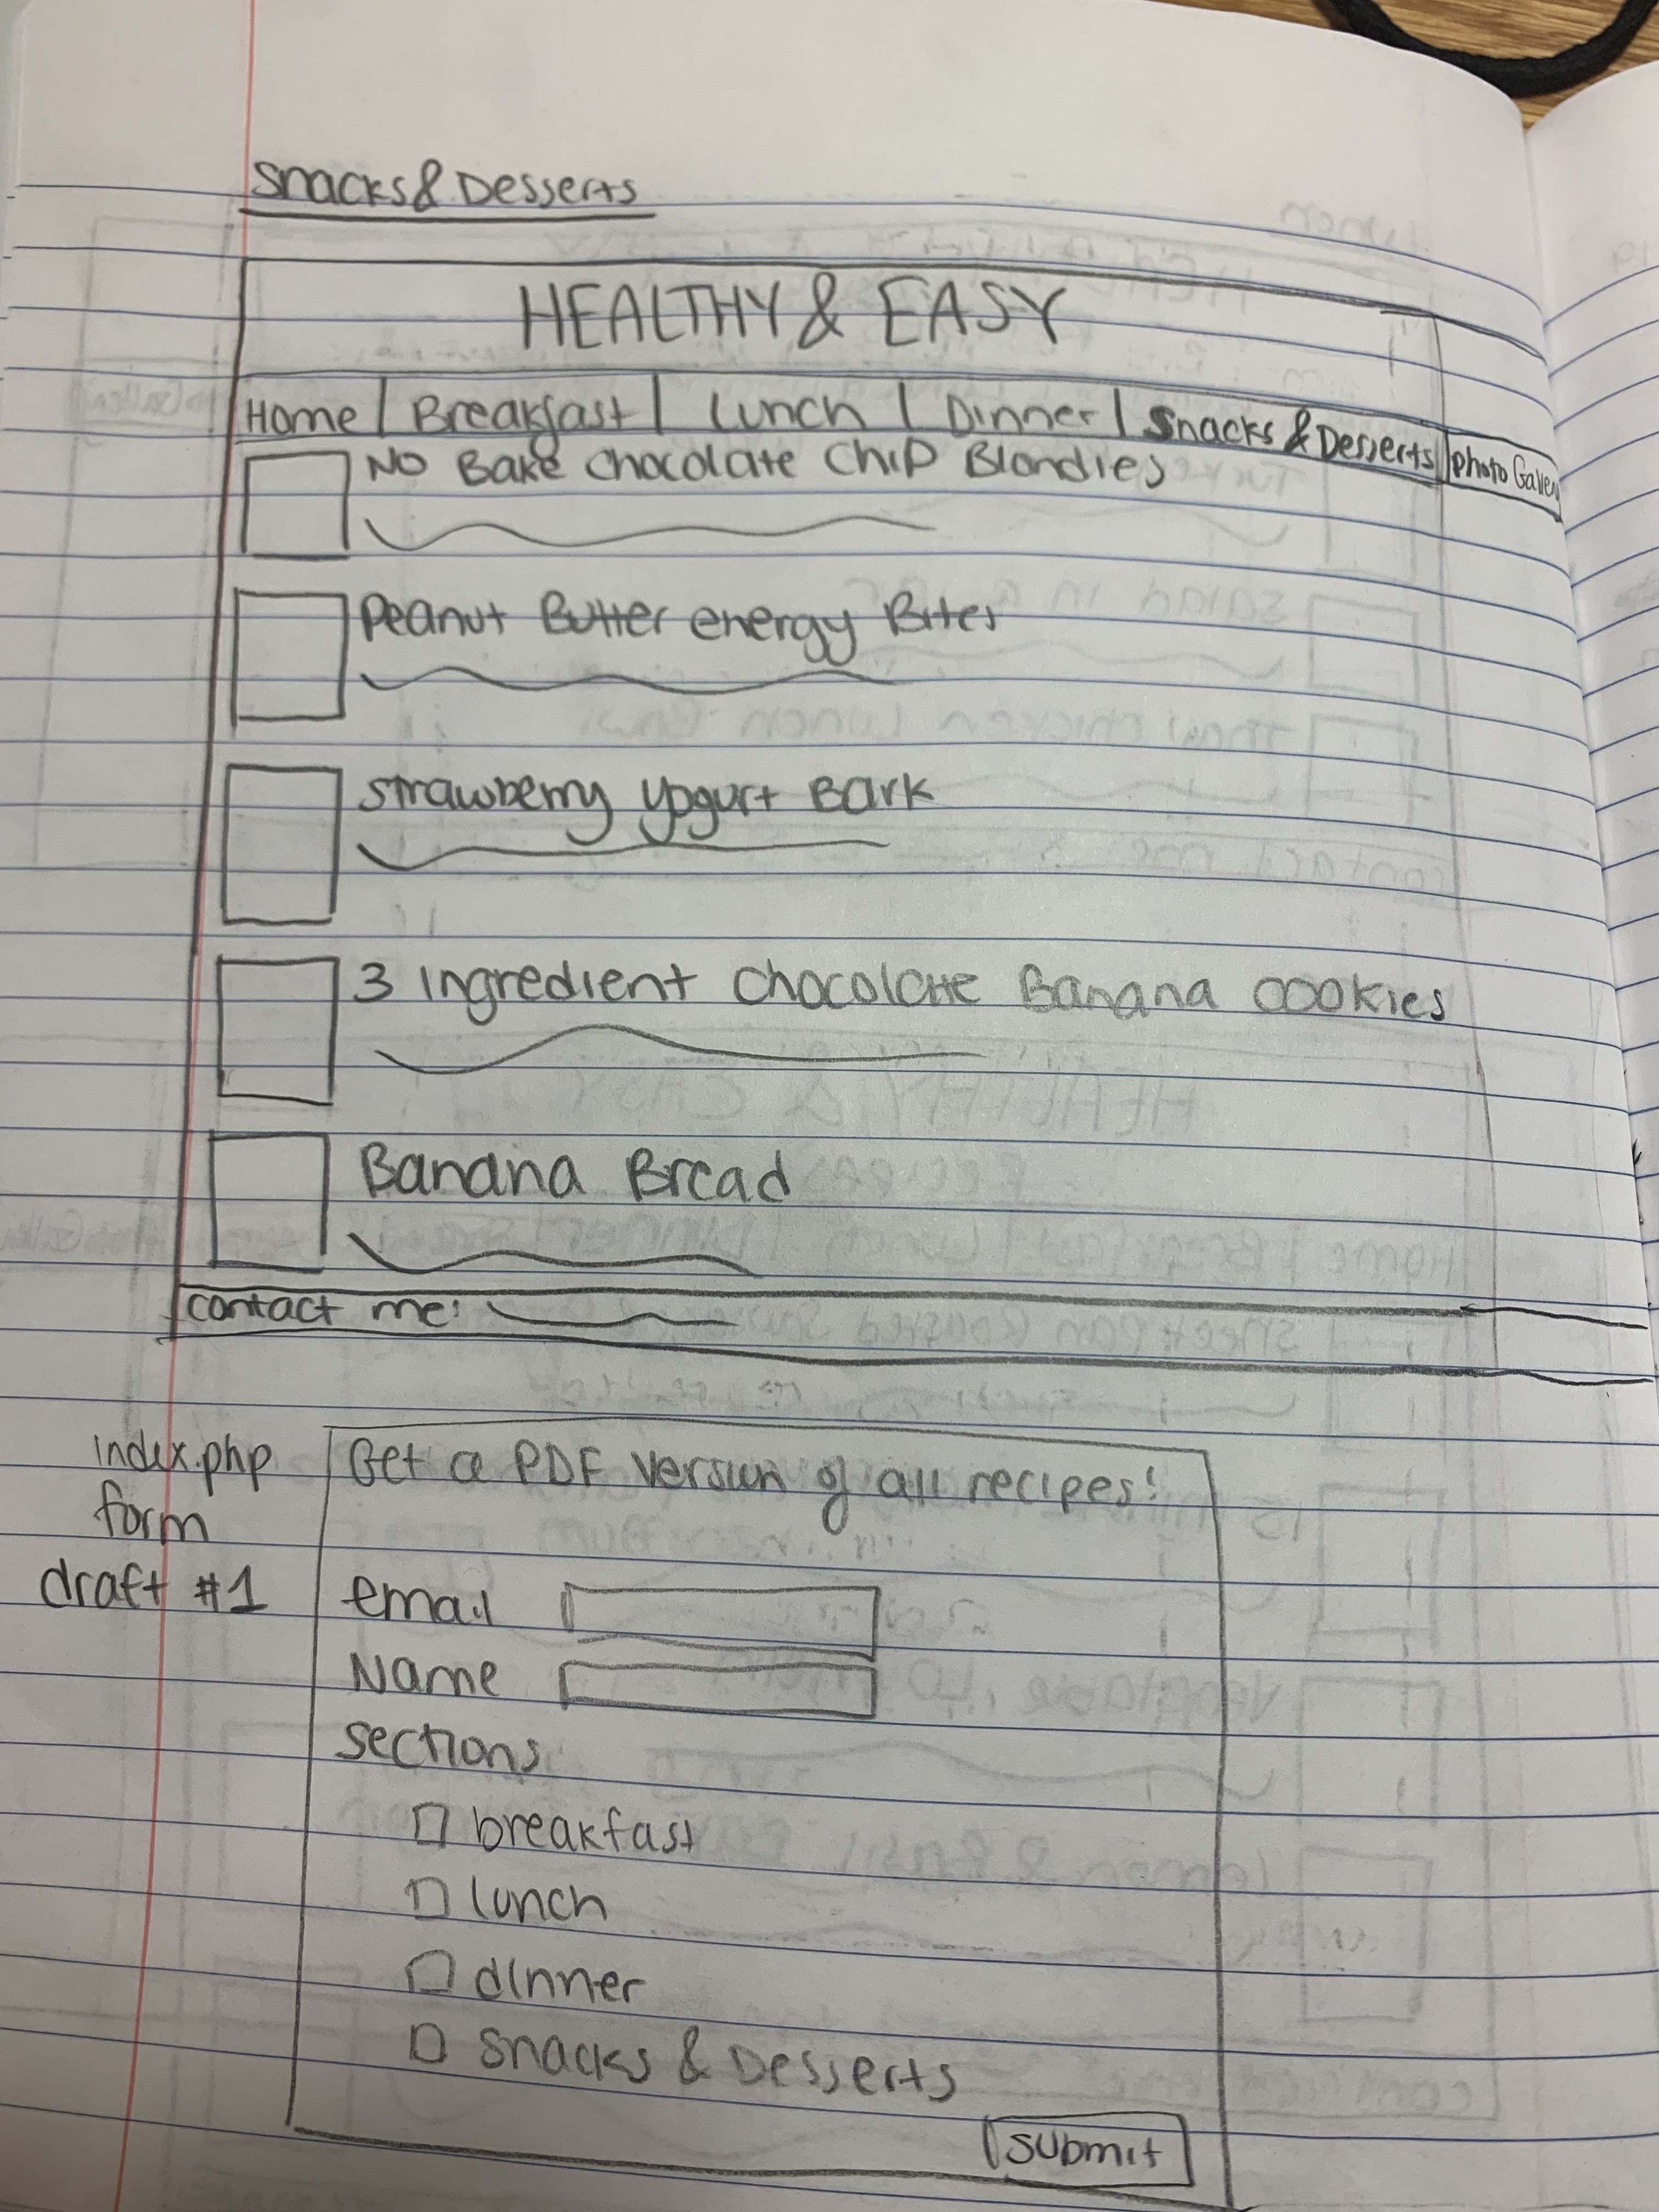 Snacks & Desserts
HEALTHY & EASY
Home | Breakfast | Lunch | Dinner | Snacks & Desserts | photo Gallery
NO Bake Chocolate Chip Blondies
Peanut Butter energy Bites
Strawberry yogurt Bark
3 Ingredient Chocolate Banana cookies
Banana Bread
contact me:
index.php
form
draft #1
Get a PDF version of all recipes!
email
Name
sections
breakfast
lunch
dinner
Snacks & Desserts
submit